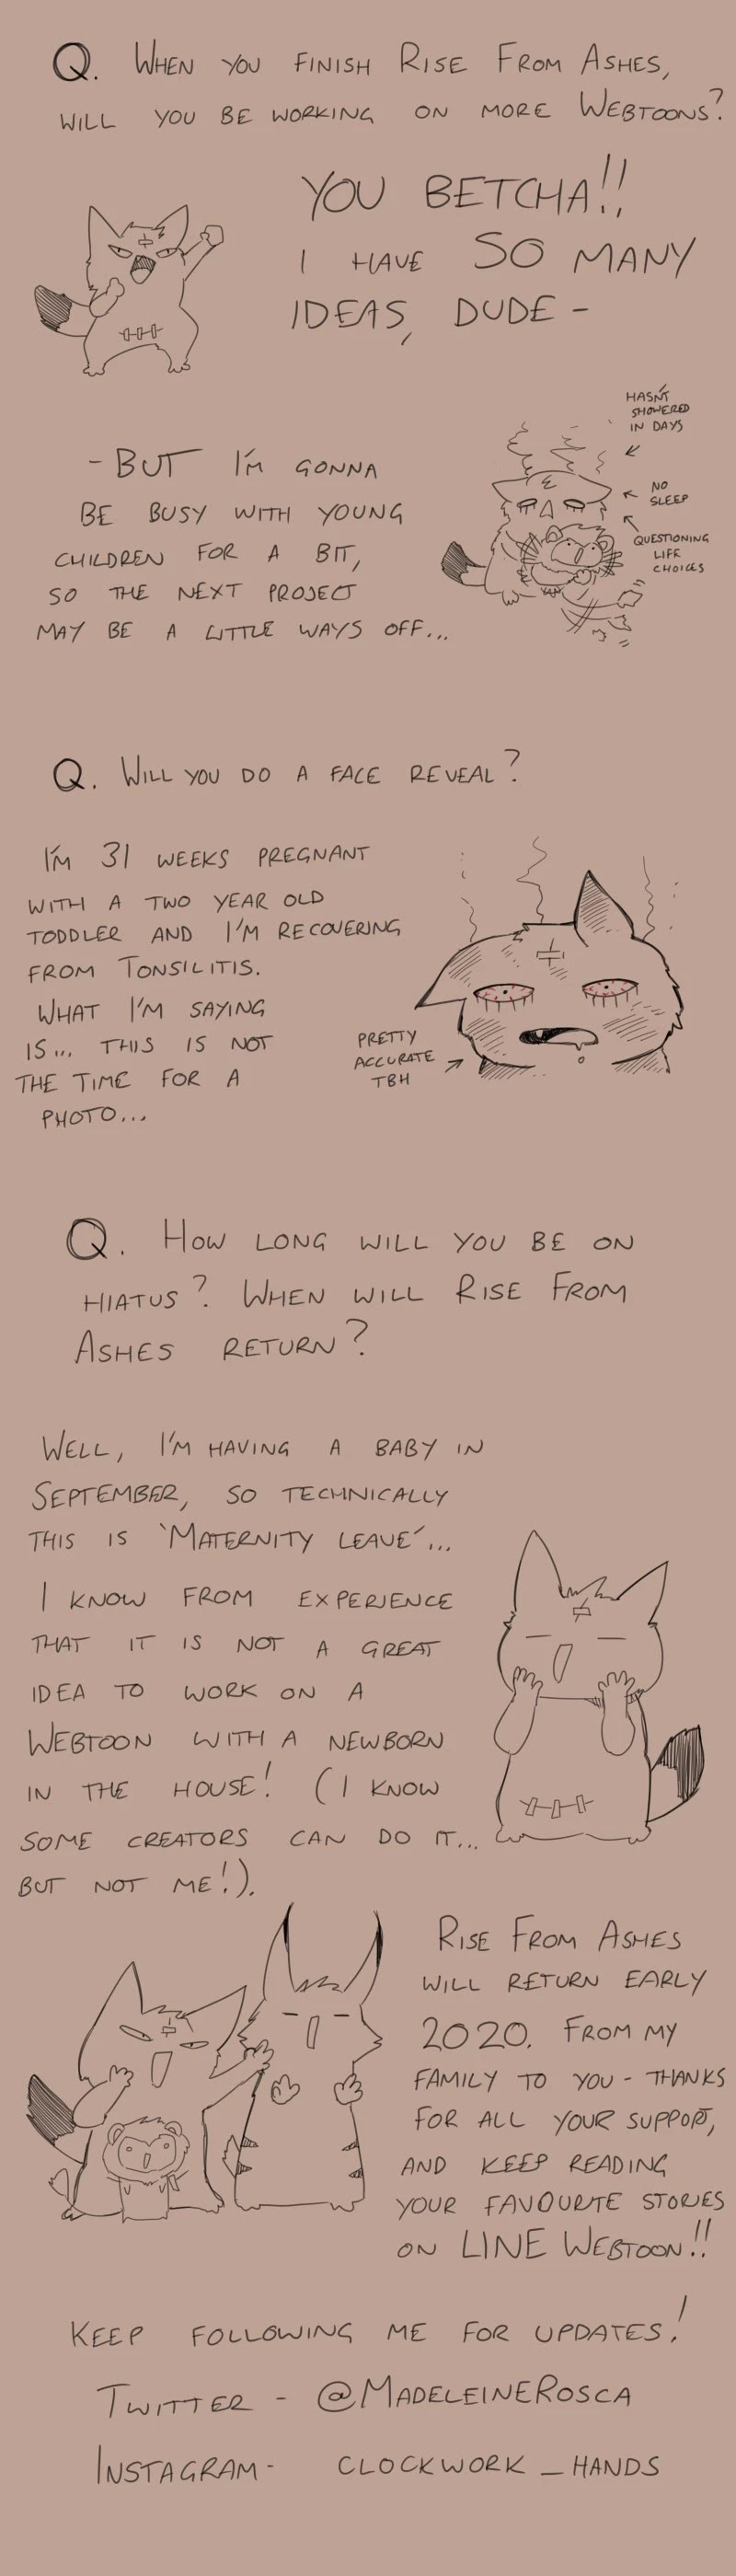 Q. WHEN YOU FINISH RISE FROM ASHES,
WILL YOU BE WORKING ON MORE WEBTOONS?
YOU BETCHA!!
I HAVE SO MANY
IDEAS, DUDE -
- BUT I'M GONNA
BE BUSY WITH YOUNG
CHILDREN FOR A BIT,
SO THE NEXT PROJECT
MAY BE A LITTLE WAYS OFF...
HASN'T
SHOWERED
IN DAYS
NO
SLEEP
QUESTIONING
LIFE
CHOICES
Q. WILL YOU DO A FACE REVEAL?
I'M 31 WEEKS PREGNANT
WITH A TWO YEAR OLD
TODDLER AND I'M RECOVERING
FROM TONSILITIS.
WHAT I'M SAYING
IS... THIS IS NOT
THE TIME FOR A
PHOTO...
PRETTY
ACCURATE
TBH
Q. HOW LONG WILL YOU BE ON
HIATUS? WHEN WILL RISE FROM
ASHES RETURN?
WELL, I'M HAVING A BABY IN
SEPTEMBER, SO TECHNICALLY
THIS IS 'MATERNITY LEAVE'...
I KNOW FROM EXPERIENCE
THAT IT IS NOT A GREAT
IDEA TO WORK ON A
WEBTOON WITH A NEWBORN
IN THE HOUSE! (I KNOW
SOME CREATORS CAN DO IT...
BUT NOT ME!).
RISE FROM ASHES
WILL RETURN EARLY
2020. FROM MY
FAMILY TO YOU - THANKS
FOR ALL YOUR SUPPORT,
AND KEEP READING
YOUR FAVOURITE STORIES
ON LINE WEBTOON!!
KEEP FOLLOWING ME FOR UPDATES!
TWITTER - @MADELEINEROSCA
INSTAGRAM - CLOCKWORK_HANDS